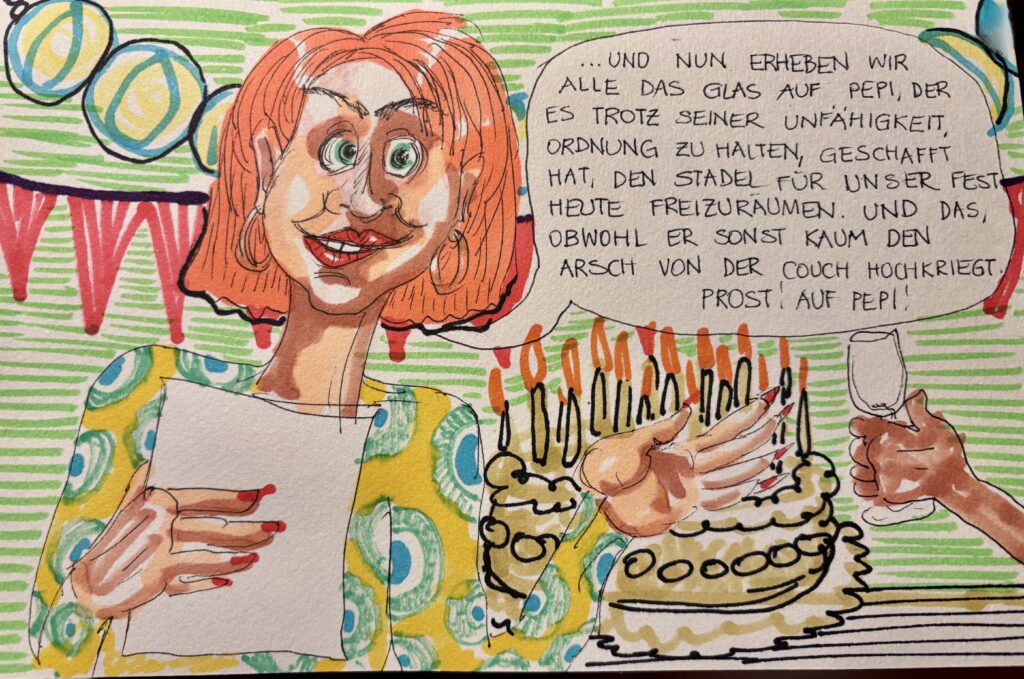 ...UND NUN ERHEBEN WIR
ALLE DAS GLAS AUF PEPI, DER
ES TROTZ SEINER UNFÄHIGKEIT,
ORDNUNG ZU HALTEN, GESCHAFFT
HAT, DEN STADEL FÜR UNSER FEST
HEUTE FREIZURÄUMEN. UND DAS,
OBWOHL ER SONST KAUM DEN
ARSCH VON DER COUCH HOCHKRIEGT.
PROST! AUF PEPI!